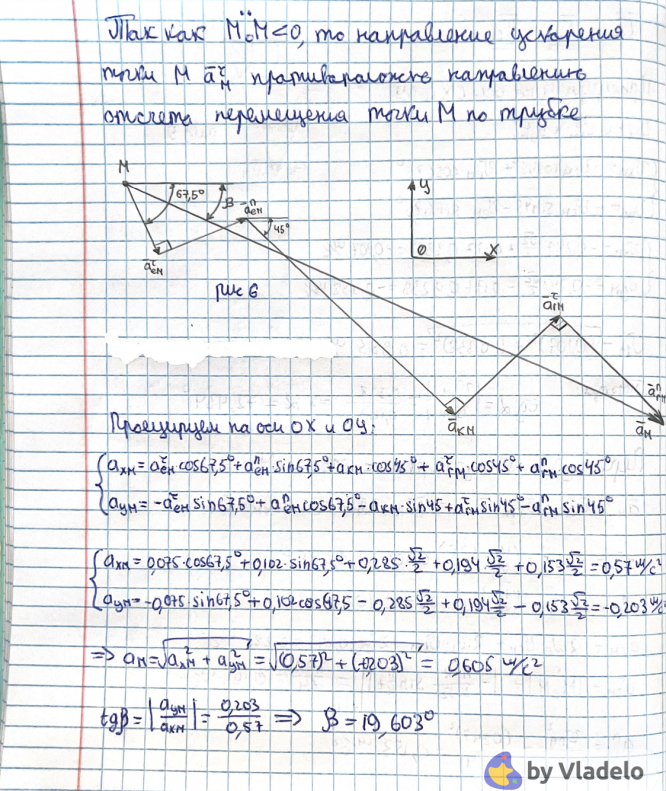 Так как M₀M̈<0, то направление ускорения
точки M ā^τ_M противоположно направлению
отсчета перемещения точки M по трубке
M
67,5°
β
ā^n_eM
45°
ā^τ_eM
рис 6
y
0
x
ā^τ_rM
ā_KM
ā^n_rM
ā_M
Проецируем на оси OX и OY:
a_xM = a^τ_eM cos67,5° + a^n_eM sin67,5° + a_KM · cos45° + a^τ_rM · cos45° + a^n_rM cos45°
a_yM = -a^τ_eM sin67,5° + a^n_eM cos67,5° - a_KM · sin45 + a^τ_rM sin45° - a^n_rM sin45°
a_xM = 0,075·cos67,5° + 0,102·sin67,5° + 0,285·√2/2 + 0,194 √2/2 + 0,153 √2/2 = 0,57 м/с²
a_yM = -0,075 sin67,5° + 0,102 cos67,5 - 0,285 √2/2 + 0,194 √2/2 - 0,153 √2/2 = -0,203 м/с²
=> a_M = √(a²_xM + a²_yM) = √((0,57)² + (-0,203)²) = 0,605 м/с²
tgβ = |a_yM/a_xM| = 0,203/0,57 => β = 19,603°
by Vladelo